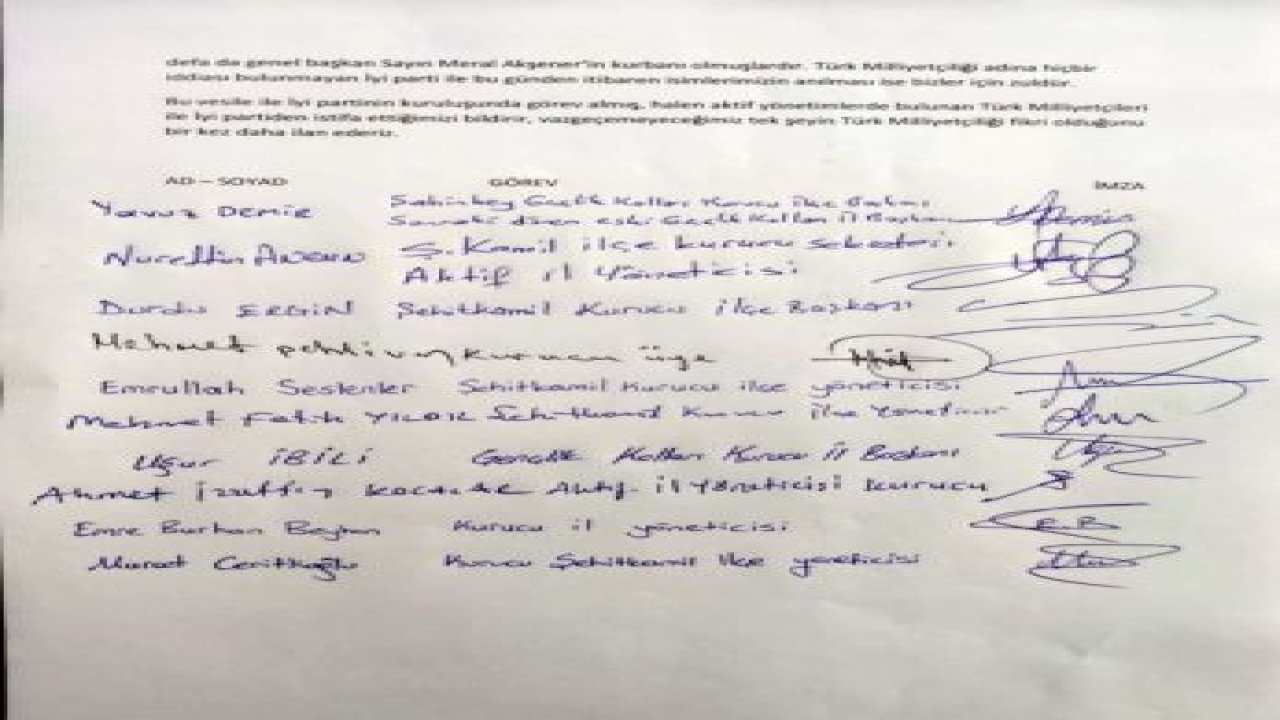 defa da genel başkan Sayın Meral Akşener'in kurbanı olmuşlardır. Türk Milliyetçiliği adına hiçbir
iddiası bulunmayan İyi parti ile bu günden itibaren isimlerimizin anılması ise bizler için zuldür.
Bu vesile ile İyi partinin kuruluşunda görev almış, halen aktif yönetimlerde bulunan Türk Milliyetçileri
ile İyi partiden istifa ettiğimizi bildirir, vazgeçemeyeceğimiz tek şeyin Türk Milliyetçiliği fikri olduğunu
bir kez daha ilan ederiz.
AD – SOYAD GÖREV İMZA
Yavuz DEMİR Şahinbey Gençlik Kolları Kurucu ilçe Başkanı
eski Gençlik Kolları il Başkanı
Nurettin Ş.Kamil ilçe kurucu sekreteri
Aktif il Yöneticisi
Durdu ERGİN Şehitkamil Kurucu ilçe Başkanı
Mehmet pehlivan kurucu üye
Emrullah Seslenler Şehitkamil Kurucu ilçe yöneticisi
Mehmet Fatih YILDIZ Şehitkamil Kurucu ilçe Yöneticisi
Uğur İBİLİ Gençlik Kolları Kurucu İl Başkanı
Ahmet İzzettin Aktif il Yöneticisi Kurucu
Emre Burhan Kurucu il yöneticisi
Murat Ceritoğlu Kurucu Şehitkamil İlçe yöneticisi